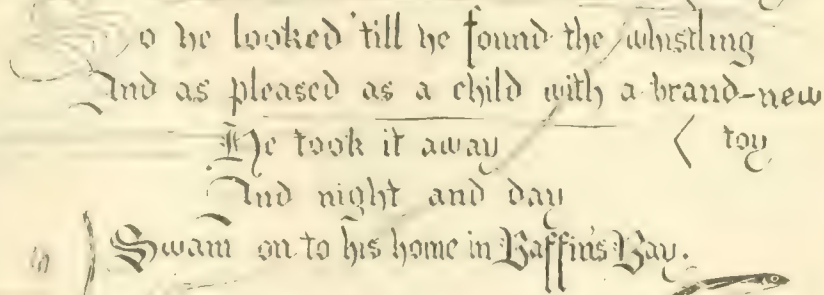 So he looked 'till he found the whistling
And as pleased as a child with a brand-new
He took it away < toy
And night and day
Swam on to his home in Baffin's Bay.